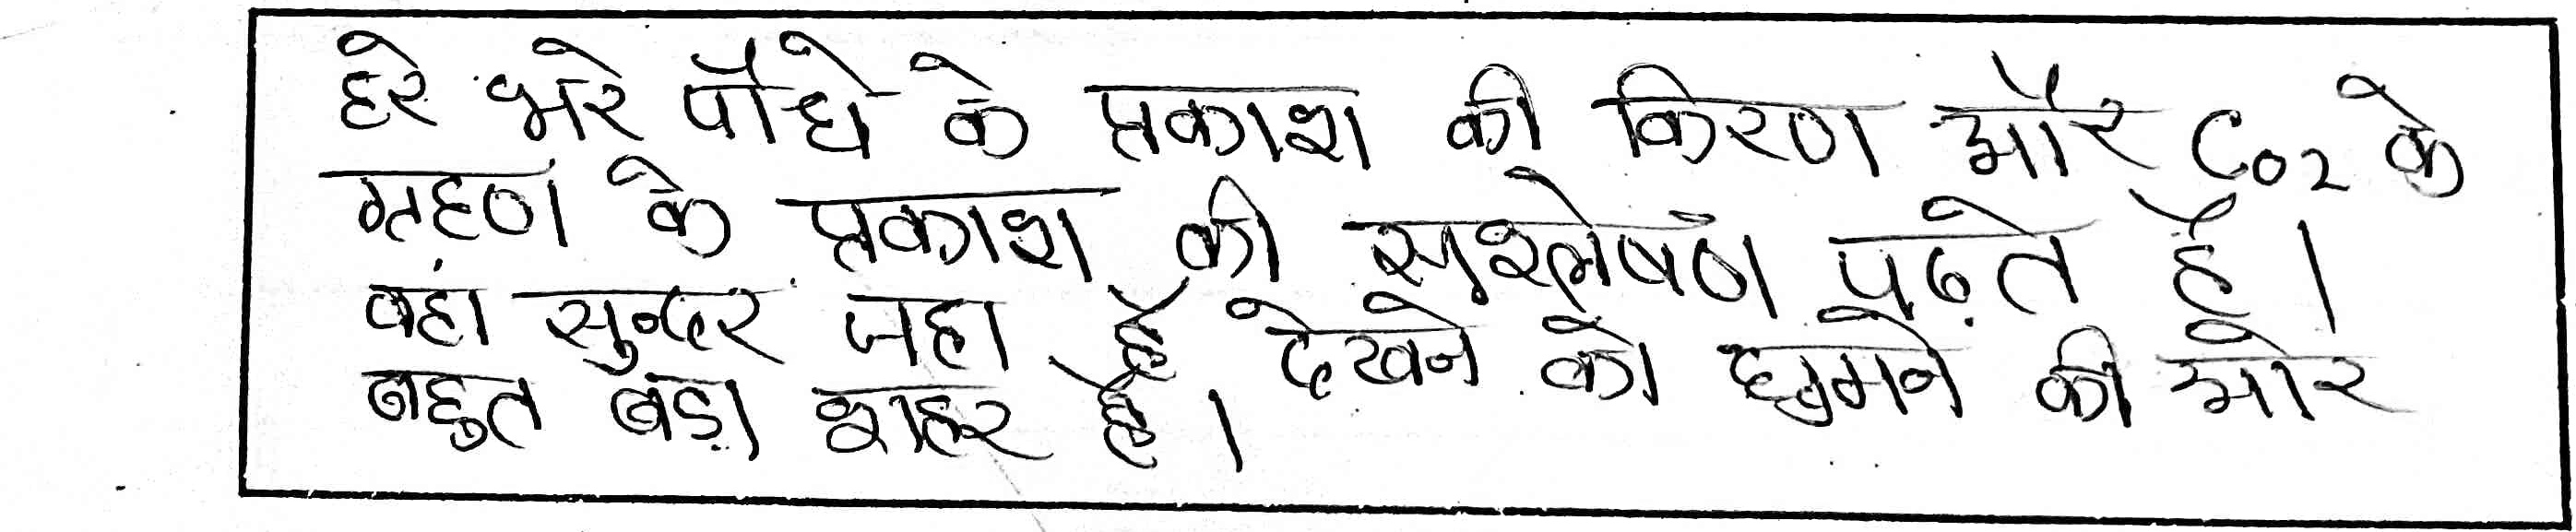 हरे भरे पौधे के प्रकाश की किरण और CO2 के
ग्रहण के प्रकाश की सश्लेषण पढ़ते है।
वहां सुन्दर जहा है देखने को घुमने की ओर
बहुत बड़ा शहर है।